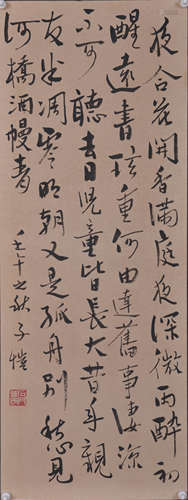 夜合花開香滿庭夜深微雨醉初
醒遠書珍重何由達舊事凄涼
不可聽去日児童皆長大昔年親
友半凋零明朝又是孤舟别愁見
河橋酒幔青
壬午之秋子愷